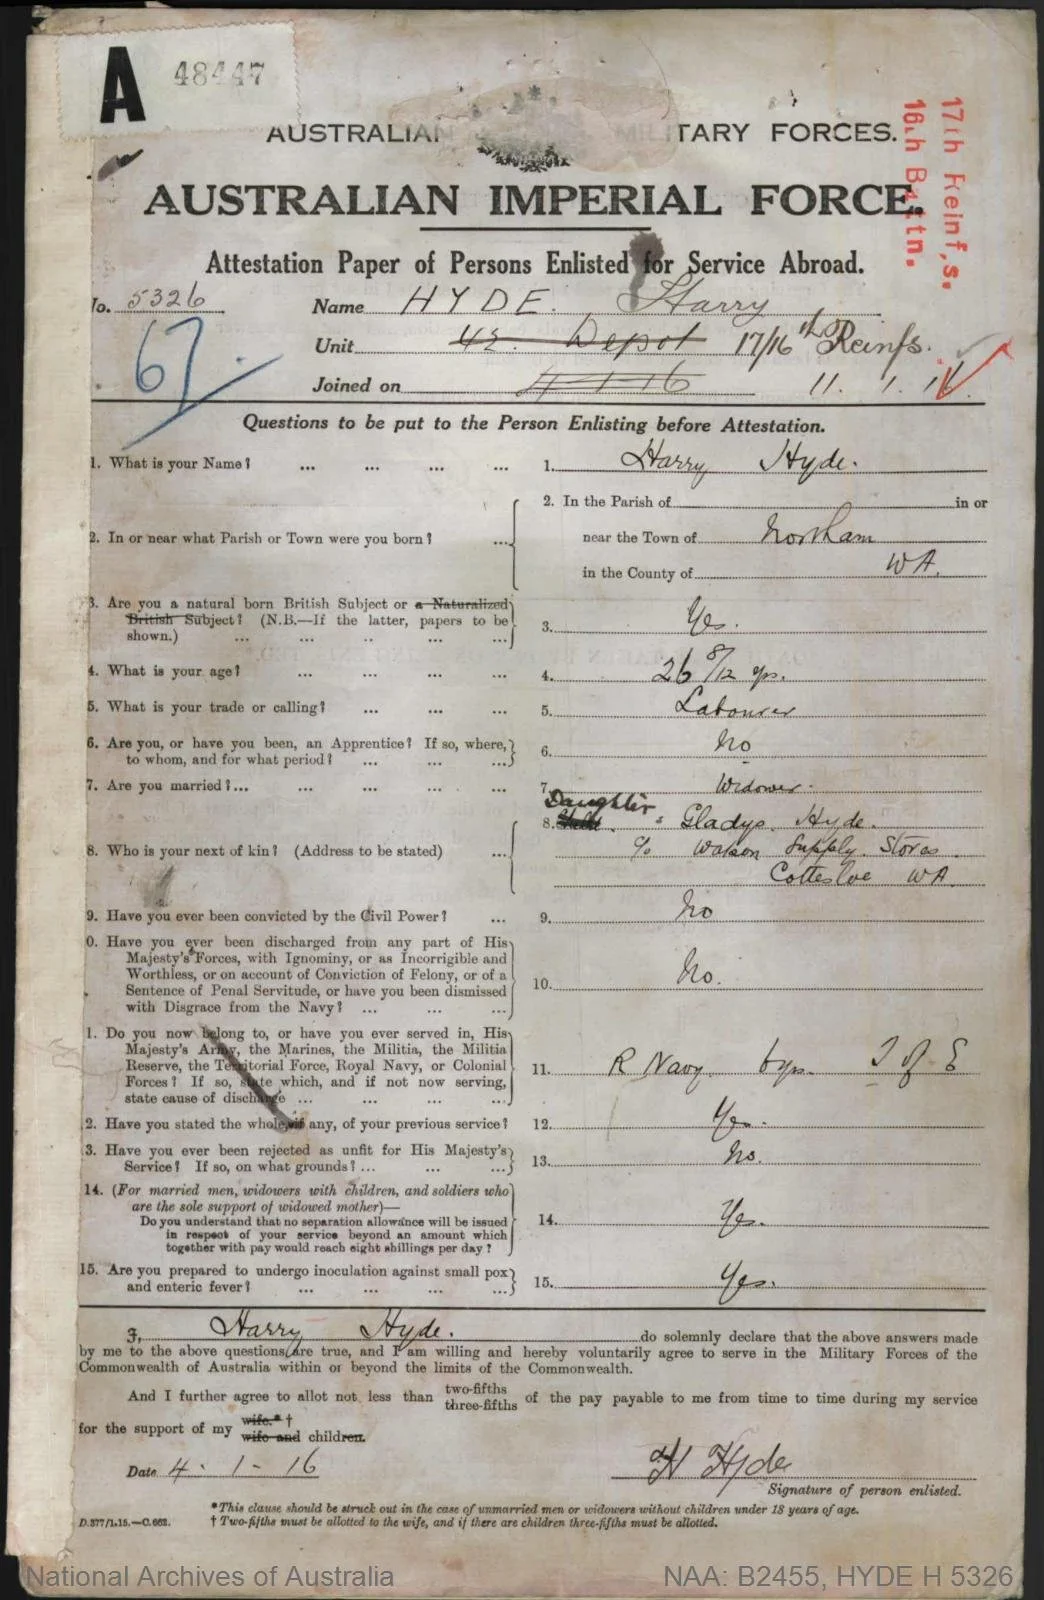 A 48447
AUSTRALIAN MILITARY FORCES.
17th Reinf,s.
16th Battn.
AUSTRALIAN IMPERIAL FORCE.
Attestation Paper of Persons Enlisted for Service Abroad.
No. 5326 Name HYDE. Harry
67. Unit 42. Depot 17/16th Reinfs.
Joined on 4-1-16 11. 1. 16.
Questions to be put to the Person Enlisting before Attestation.
1. What is your Name? ... ... ... ... 1. Harry Hyde.
2. In the Parish of in or
2. In or near what Parish or Town were you born? ... near the Town of Northam
in the County of WA.
3. Are you a natural born British Subject or a Naturalized
British Subject? (N.B.—If the latter, papers to be 3. Yes.
shown.) ... ... .. ... ...
4. What is your age? ... ... ... ... 4. 26 8/12 yrs.
5. What is your trade or calling? ... ... ... 5. Labourer
6. Are you, or have you been, an Apprentice? If so, where, 6. No
to whom, and for what period? ... ... ...
7. Are you married?... ... ... ... ... 7. Widower.
Daughter
8. Gladys. Hyde.
8. Who is your next of kin? (Address to be stated) ... c/o Watson Supply. Stores
Cottesloe WA.
9. Have you ever been convicted by the Civil Power? ... 9. No
0. Have you ever been discharged from any part of His
Majesty's Forces, with Ignominy, or as Incorrigible and
Worthless, or on account of Conviction of Felony, or of a 10. No.
Sentence of Penal Servitude, or have you been dismissed
with Disgrace from the Navy? ... ... ...
1. Do you now belong to, or have you ever served in, His
Majesty's Army, the Marines, the Militia, the Militia
Reserve, the Territorial Force, Royal Navy, or Colonial 11. R Navy. 6yrs. T of E
Forces? If so, state which, and if not now serving,
state cause of discharge ... ... ... ...
2. Have you stated the whole, if any, of your previous service? 12. Yes.
3. Have you ever been rejected as unfit for His Majesty's 13. No.
Service? If so, on what grounds? ... ... ...
14. (For married men, widowers with children, and soldiers who
are the sole support of widowed mother)—
Do you understand that no separation allowance will be issued 14. Yes.
in respect of your service beyond an amount which
together with pay would reach eight shillings per day?
15. Are you prepared to undergo inoculation against small pox 15. Yes.
and enteric fever? ... ... ...
I, Harry Hyde. do solemnly declare that the above answers made
by me to the above questions are true, and I am willing and hereby voluntarily agree to serve in the Military Forces of the
Commonwealth of Australia within or beyond the limits of the Commonwealth.
And I further agree to allot not less than two-fifths three-fifths of the pay payable to me from time to time during my service
for the support of my wife.*† wife and children.
Date 4-1-16 H Hyde
Signature of person enlisted.
*This clause should be struck out in the case of unmarried men or widowers without children under 18 years of age.
D.377/1.15.—C.662. † Two-fifths must be allotted to the wife, and if there are children three-fifths must be allotted.
National Archives of Australia NAA: B2455, HYDE H 5326